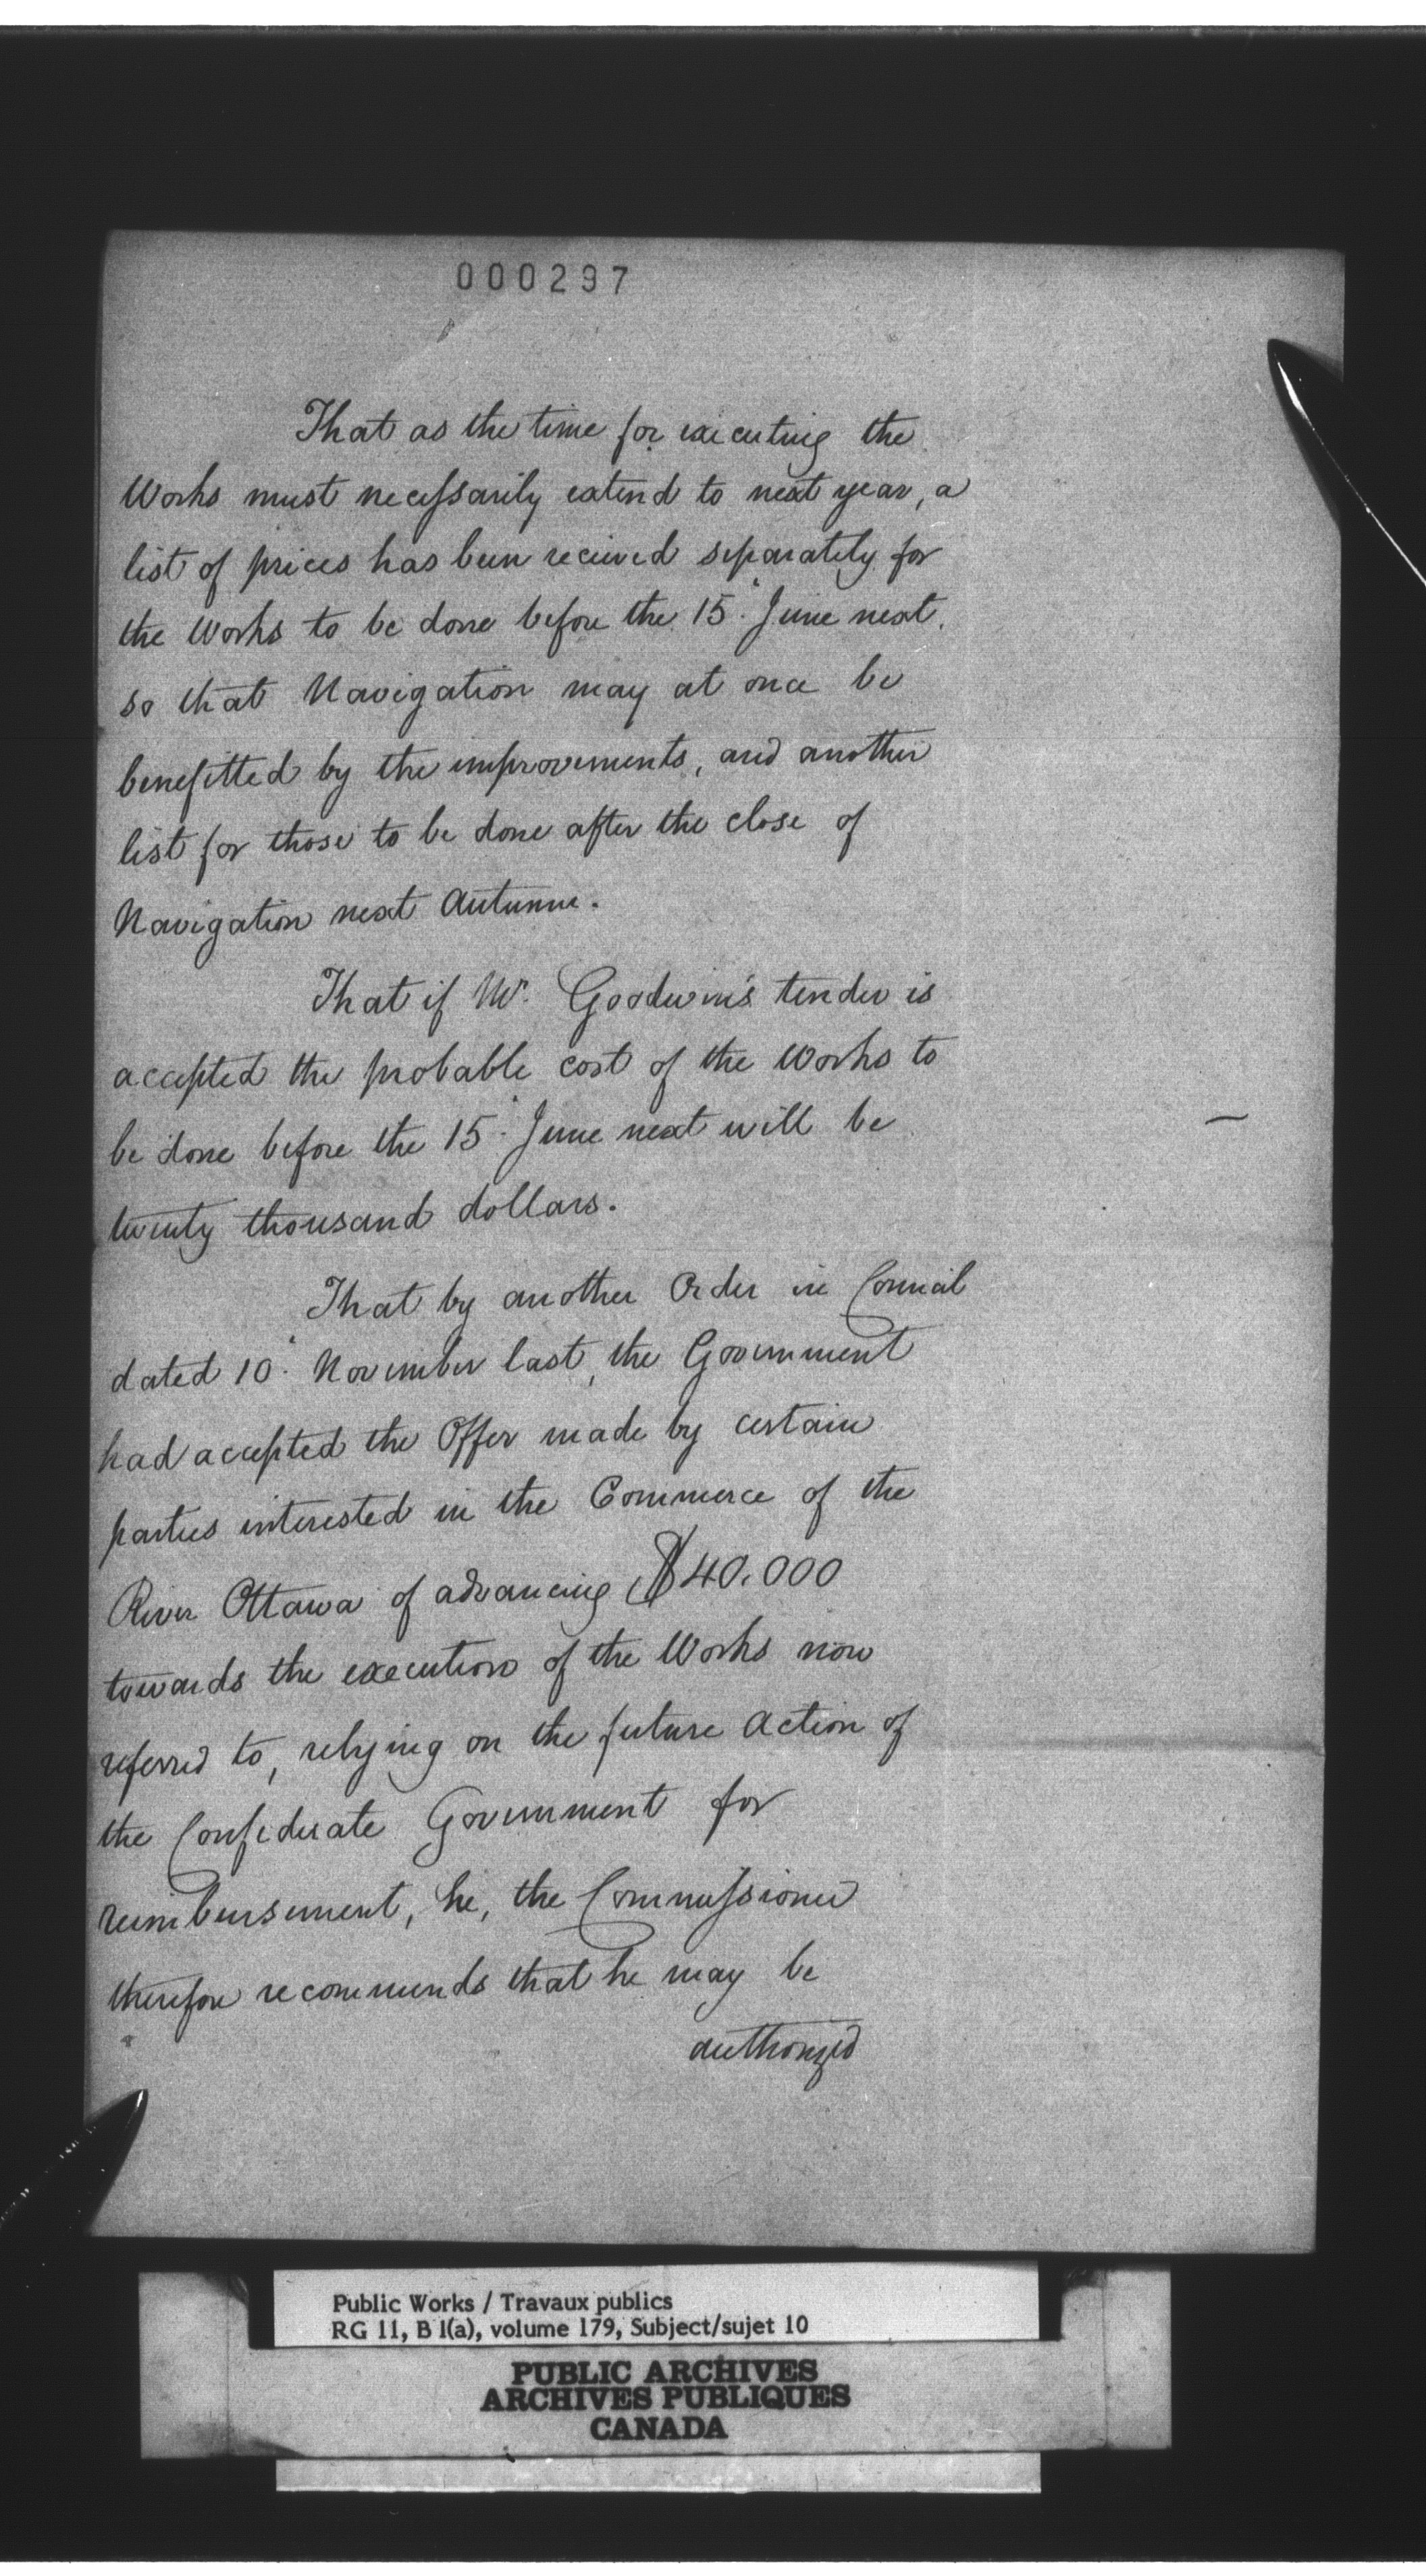 000297
That as the time for executing the
Works must necessarily extend to next year, a
list of prices has been received separately for
the Works to be done before the 15" June next,
so that Navigation may at once be
benefitted by the improvements, and another
list for those to be done after the close of
Navigation next Autumn.
That if Mr. Goodwin's tender is
accepted the probable cost of the Works to
be done before the 15" June next will be
twenty thousand dollars.
That by another Order in Council
dated 10" November last, the Government
had accepted the Offer made by certain
parties interested in the Commerce of the
River Ottawa of advancing $40.000
towards the execution of the Works now
referred to, relying on the future Action of
the Confederate Government for
reimbursement, he, the Commissioner
therefore recommends that he may be
authorized
Public Works / Travaux publics
RG 11, B 1(a), volume 179, Subject/sujet 10
PUBLIC ARCHIVES
ARCHIVES PUBLIQUES
CANADA